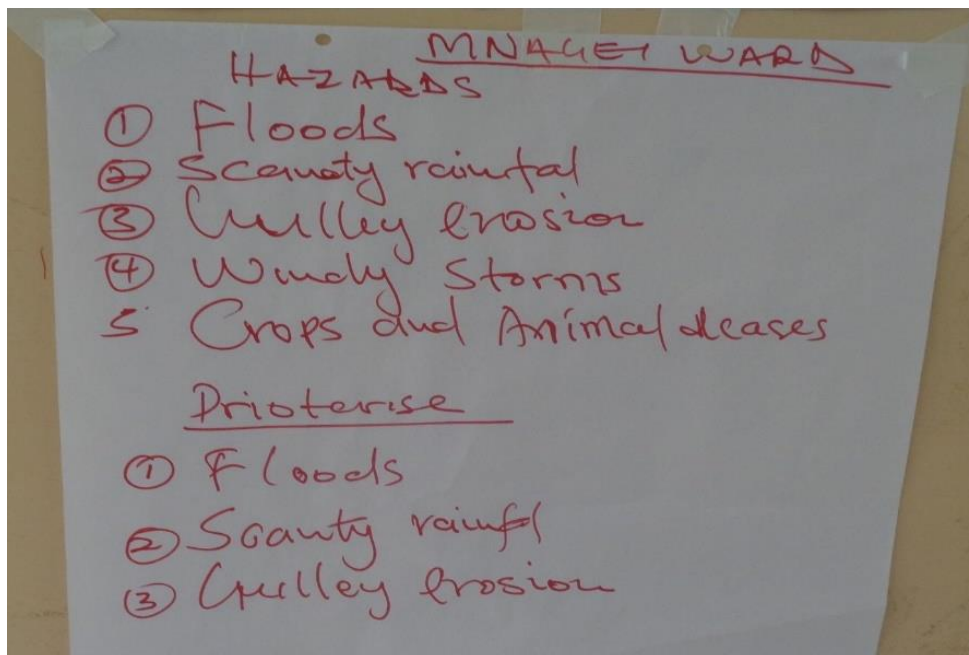 MNAGEI WARD
HAZARDS
① Floods
② Scanaty rainfal
③ Gulley erosion
④ Windy Storms
5 Crops and Animal deases
Prioterise
① Floods
② Scanty rainfl
③ Gulley erosion